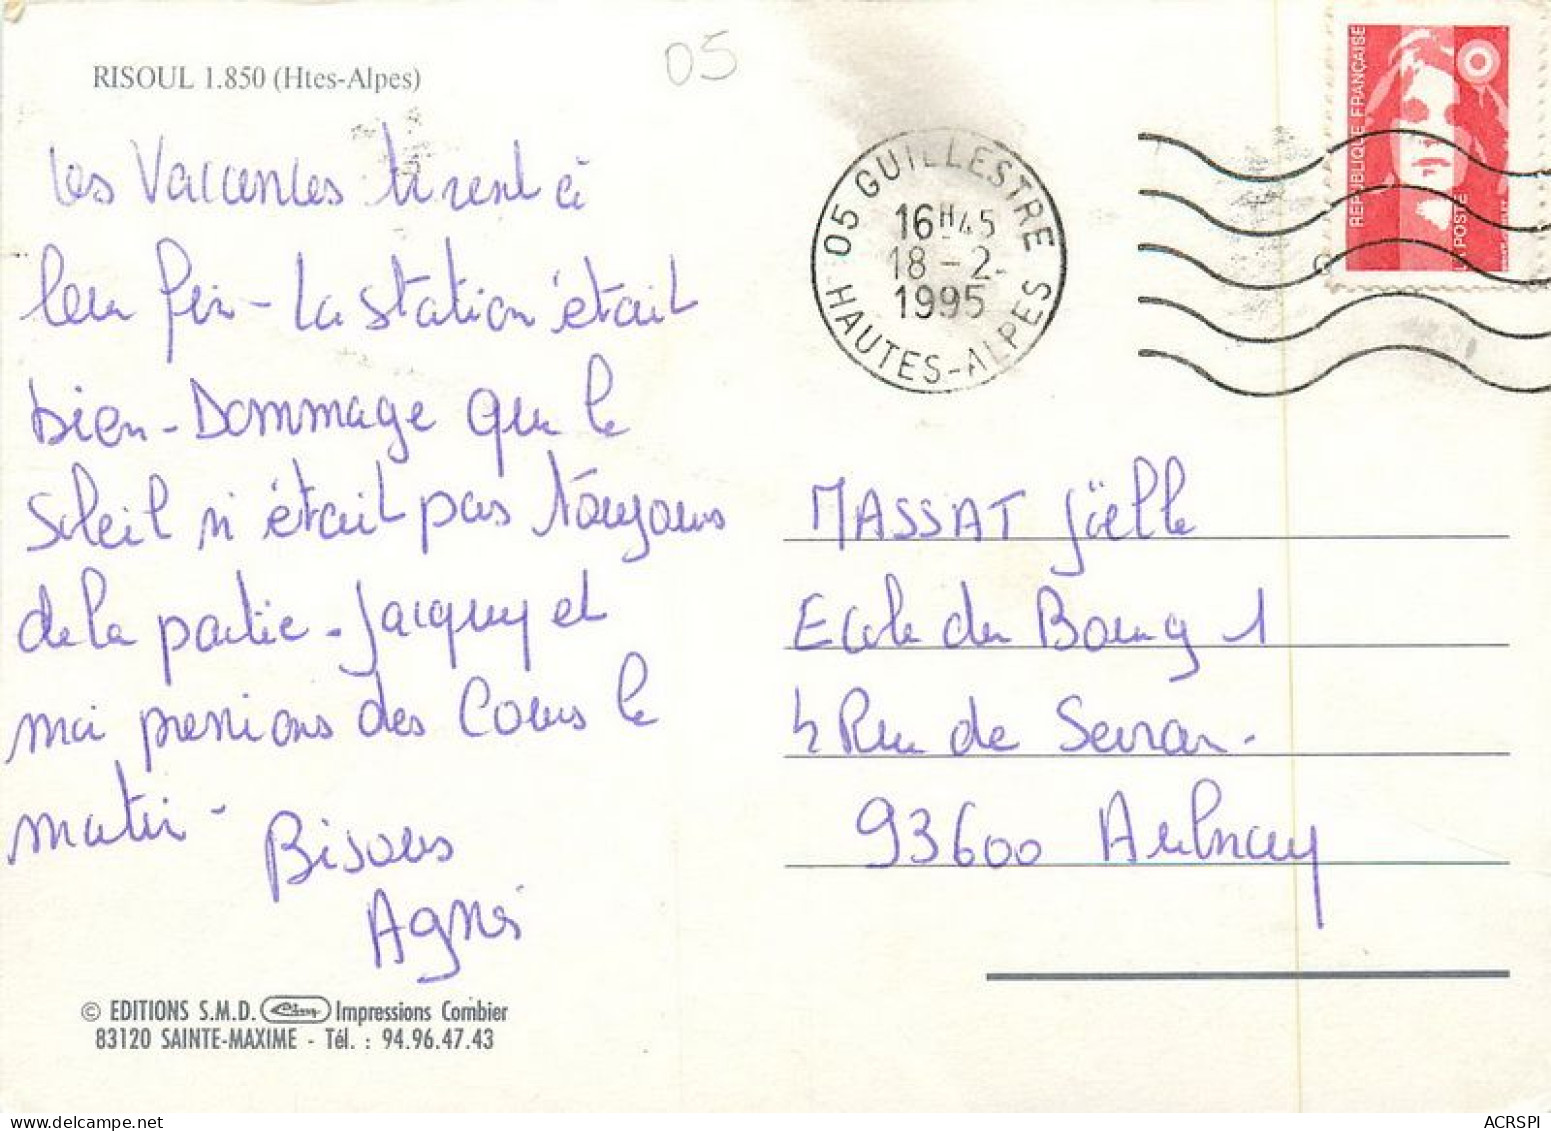 RISOUL 1.850 (Htes-Alpes)
05
Les Vacances tirent à
leur fin - La station était
bien - Dommage que le
Soleil n'était pas toujours
de la partie - Jacquy et
moi prenions des Cours le
matin -
Bisous
Agnès
© EDITIONS S.M.D. Cim Impressions Combier
83120 SAINTE-MAXIME - Tél. : 94.96.47.43
05 GUILLESTRE
16H45
18-2.
1995
HAUTES-ALPES
REPUBLIQUE FRANÇAISE
LA POSTE
MASSAT Joëlle
Ecole du Bourg 1
4 Rue de Sevran.
93600 Aulnay
ACRSPI